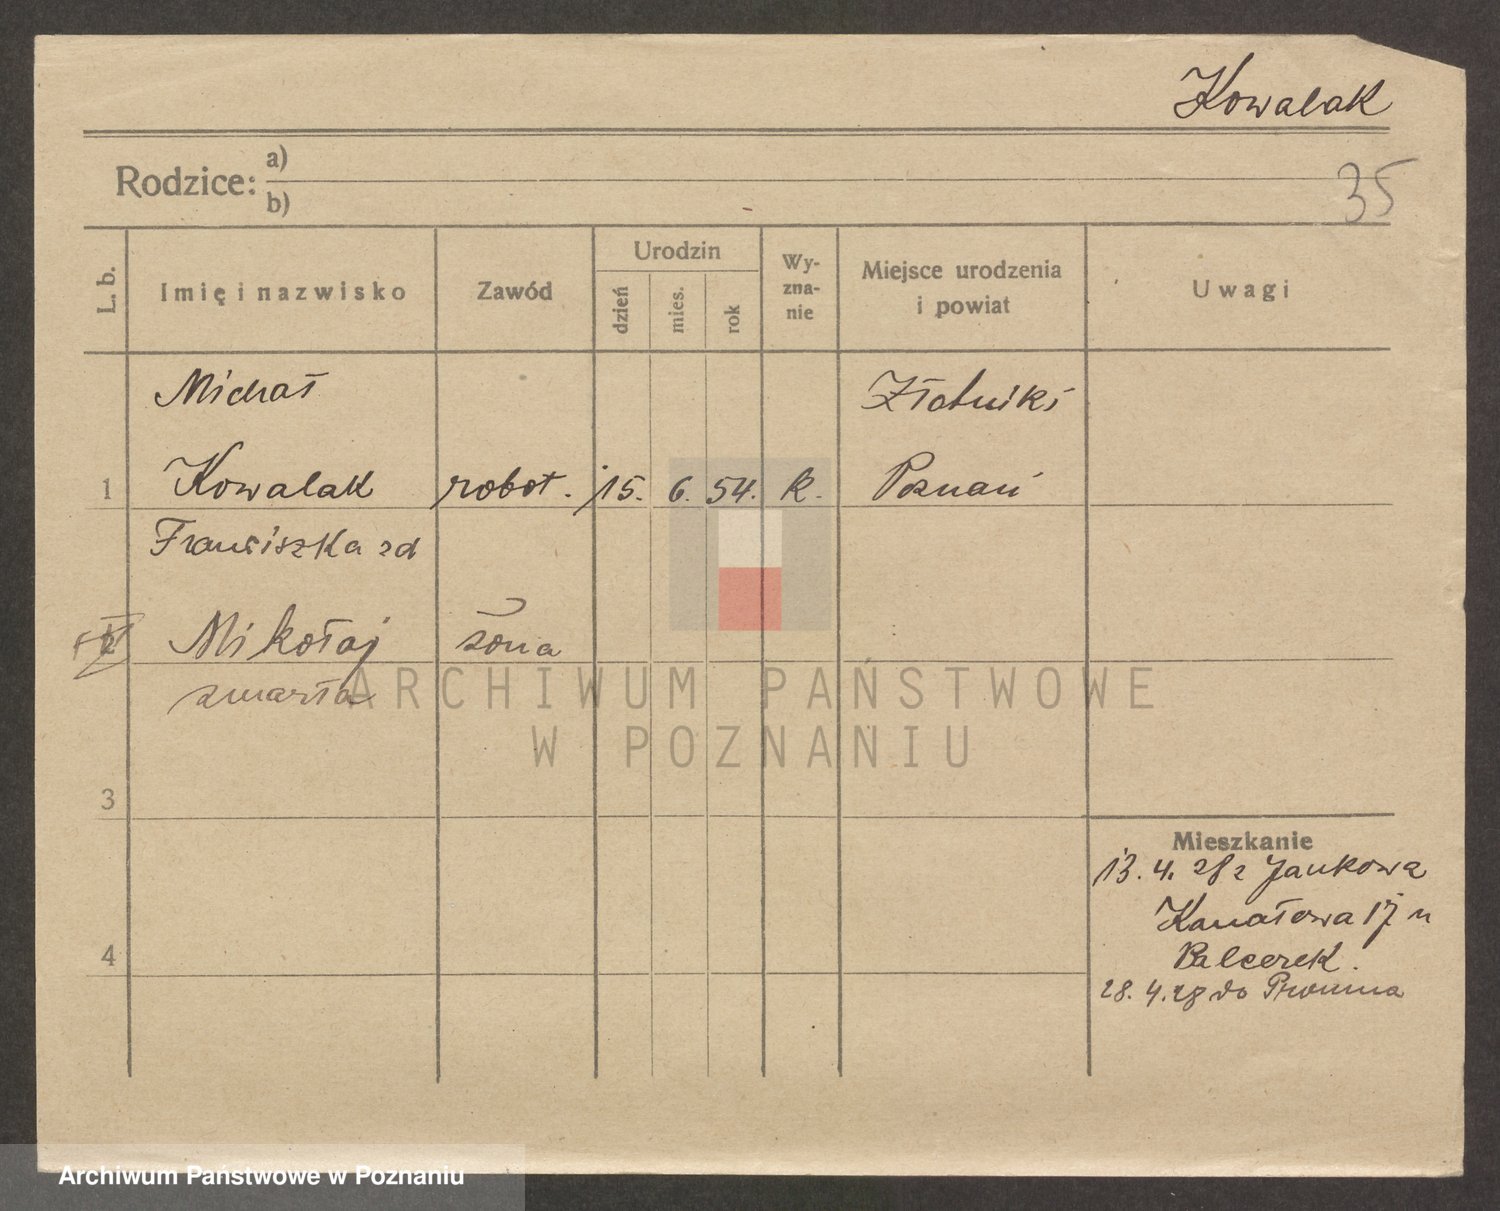 Kowalak
Rodzice: a)
b)
35
L. b.
Imię i nazwisko
Zawód
Urodzin
dzień
mies.
rok
Wy-
zna-
nie
Miejsce urodzenia
i powiat
Uwagi
Michał
Złotniki
1 Kowalak robot. 15. 6. 54. k. Poznań
Franciszka zd
2 Mikołaj żona
zmarła
ARCHIWUM PAŃSTWOWE
W POZNANIU
3
Mieszkanie
13. 4. 28 z Jankowa
Kanałowa 17 u
4
Balcerek.
28. 4. 28 do Promna
Archiwum Państwowe w Poznaniu